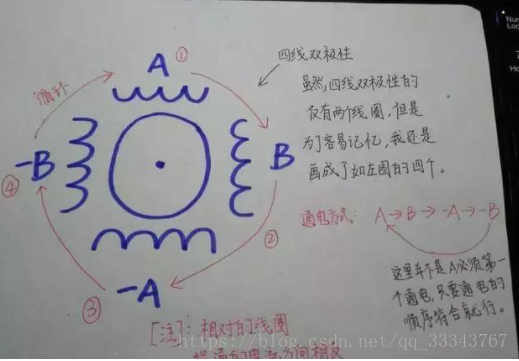 A ①
循环
四线双极性
虽然四线双极性的
仅有两个线圈,但是
为了容易记忆,我还是
画成了如左图的四个。
-B
B
④
②
通电方式: A→B→-A→-B
③
-A
这里并不是A必须第一
个通电,只要通电的
顺序符合就行。
[注]: 相对的线圈
https://blog.csdn.net/qq_33343767